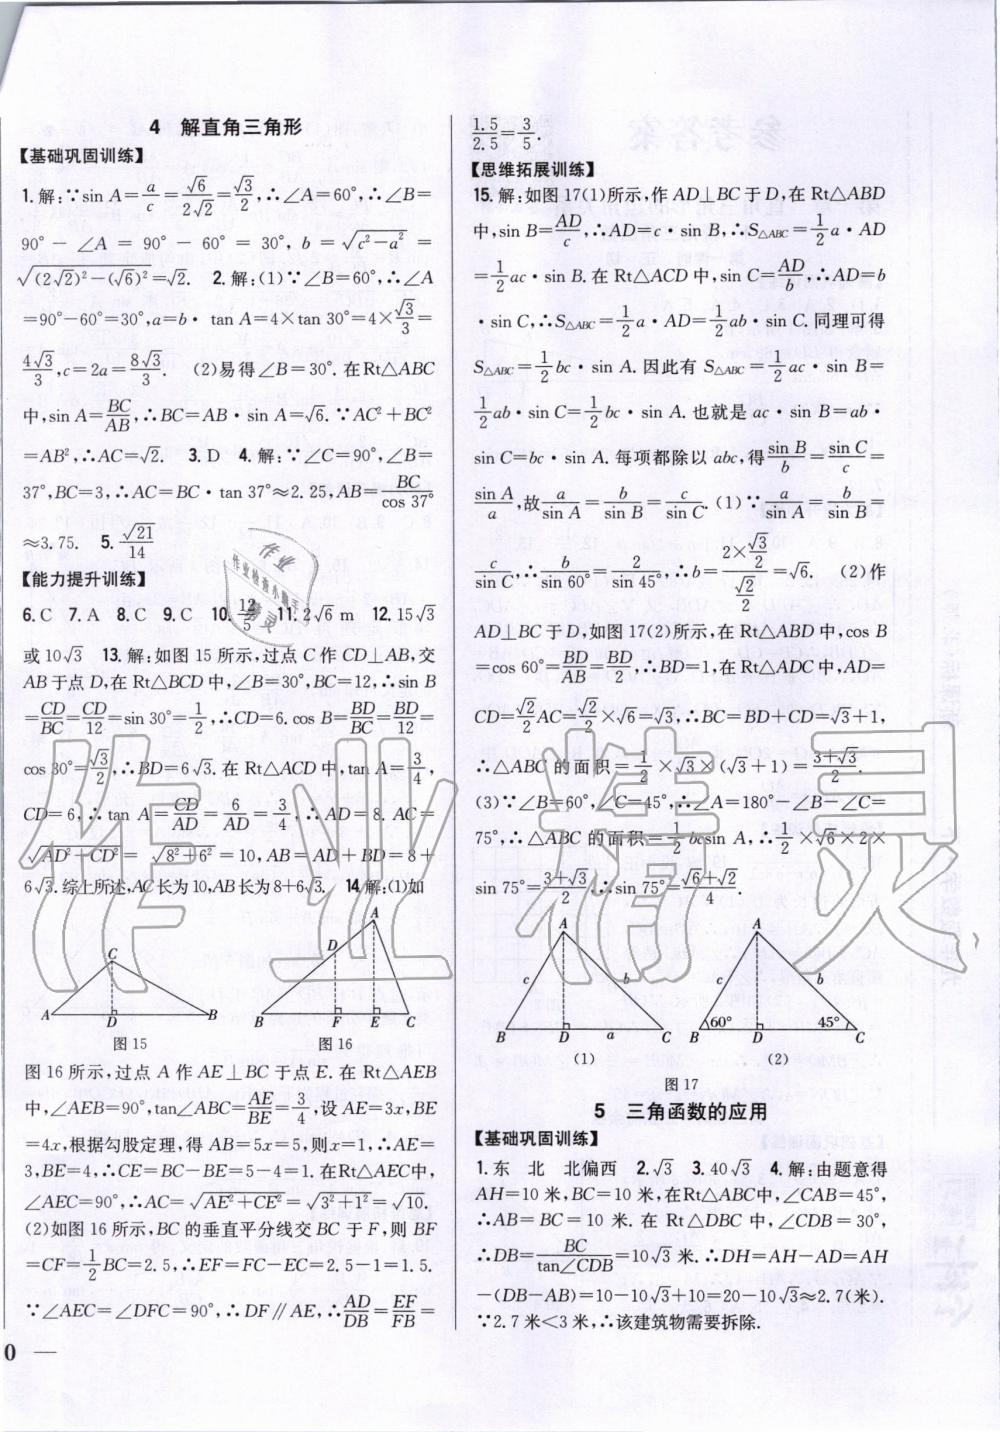 4 解直角三角形
【基础巩固训练】
1.解:∵sin A=a/c=√6/(2√2)=√3/2,∴∠A=60°,∴∠B=
90°-∠A=90°-60°=30°,b=√(c²-a²)=
√((2√2)²-(√6)²)=√2. 2.解:(1)∵∠B=60°,∴∠A
=90°-60°=30°,a=b·tan A=4×tan 30°=4×√3/3=
4√3/3,c=2a=8√3/3. (2)易得∠B=30°.在Rt△ABC
中,sin A=BC/AB,∴BC=AB·sin A=√6.∵AC²+BC²
=AB²,∴AC=√2. 3.D 4.解:∵∠C=90°,∠B=
37°,BC=3,∴AC=BC·tan 37°≈2.25,AB=BC/cos 37°
≈3.75. 5.√21/14
【能力提升训练】
6.C 7.A 8.C 9.C 10.12/5 11.2√6 m 12.15√3
或10√3 13.解:如图15所示,过点C作CD⊥AB,交
AB于点D,在Rt△BCD中,∠B=30°,BC=12,∴sin B
=CD/BC=CD/12=sin 30°=1/2,∴CD=6.cos B=BD/BC=BD/12=
cos 30°=√3/2,∴BD=6√3.在Rt△ACD中,tan A=3/4,
CD=6,∴tan A=CD/AD=6/AD=3/4,∴AD=8.AC=
√(AD²+CD²)=√(8²+6²)=10,AB=AD+BD=8+
6√3.综上所述,AC长为10,AB长为8+6√3. 14.解:(1)如
A
B
C
D
图15
A
B
C
D
E
F
图16
图16所示,过点A作AE⊥BC于点E.在Rt△AEB
中,∠AEB=90°,tan∠ABC=AE/BE=3/4,设AE=3x,BE
=4x,根据勾股定理,得AB=5x=5,则x=1,∴AE=
3,BE=4,∴CE=BC-BE=5-4=1.在Rt△AEC中,
∠AEC=90°,∴AC=√(AE²+CE²)=√(3²+1²)=√10.
(2)如图16所示,BC的垂直平分线交BC于F,则BF
=CF=1/2BC=2.5,∴EF=FC-EC=2.5-1=1.5.
∵∠AEC=∠DFC=90°,∴DF∥AE,∴AD/DB=EF/FB=
0 —
1.5/2.5=3/5.
【思维拓展训练】
15.解:如图17(1)所示,作AD⊥BC于D,在Rt△ABD
中,sin B=AD/c,∴AD=c·sin B,∴S△ABC=1/2a·AD
=1/2ac·sin B.在Rt△ACD中,sin C=AD/b,∴AD=b
·sin C,∴S△ABC=1/2a·AD=1/2ab·sin C.同理可得
S△ABC=1/2bc·sin A.因此有S△ABC=1/2ac·sin B=
1/2ab·sin C=1/2bc·sin A.也就是ac·sin B=ab·
sin C=bc·sin A.每项都除以abc,得sin B/b=sin C/c=
sin A/a,故a/sin A=b/sin B=c/sin C.(1)∵a/sin A=b/sin B=
c/sin C,∴b/sin 60°=2/sin 45°,∴b=(2×√3/2)/(√2/2)=√6. (2)作
AD⊥BC于D,如图17(2)所示,在Rt△ABD中,cos B
=cos 60°=BD/AB=BD/2,∴BD=1,在Rt△ADC中,AD=
CD=√2/2AC=√2/2×√6=√3,∴BC=BD+CD=√3+1,
∴△ABC的面积=1/2×√3×(√3+1)=(3+√3)/2.
(3)∵∠B=60°,∠C=45°,∴∠A=180°-∠B-∠C=
75°,∴△ABC的面积=1/2bcsin A,∴1/2×√6×2×
sin 75°=(3+√3)/2,∴sin 75°=(√6+√2)/4.
A
c
b
B
D
a
C
(1)
A
c
b
60°
45°
B
D
C
(2)
图17
5 三角函数的应用
【基础巩固训练】
1.东 北 北偏西 2.√3 3.40√3 4.解:由题意得
AH=10米,BC=10米,在Rt△ABC中,∠CAB=45°,
∴AB=BC=10米.在Rt△DBC中,∠CDB=30°,
∴DB=BC/tan∠CDB=10√3米.∴DH=AH-AD=AH
-(DB-AB)=10-10√3+10=20-10√3≈2.7(米).
∵2.7米<3米,∴该建筑物需要拆除.
作业精灵
作业
作业检查小助手
精灵